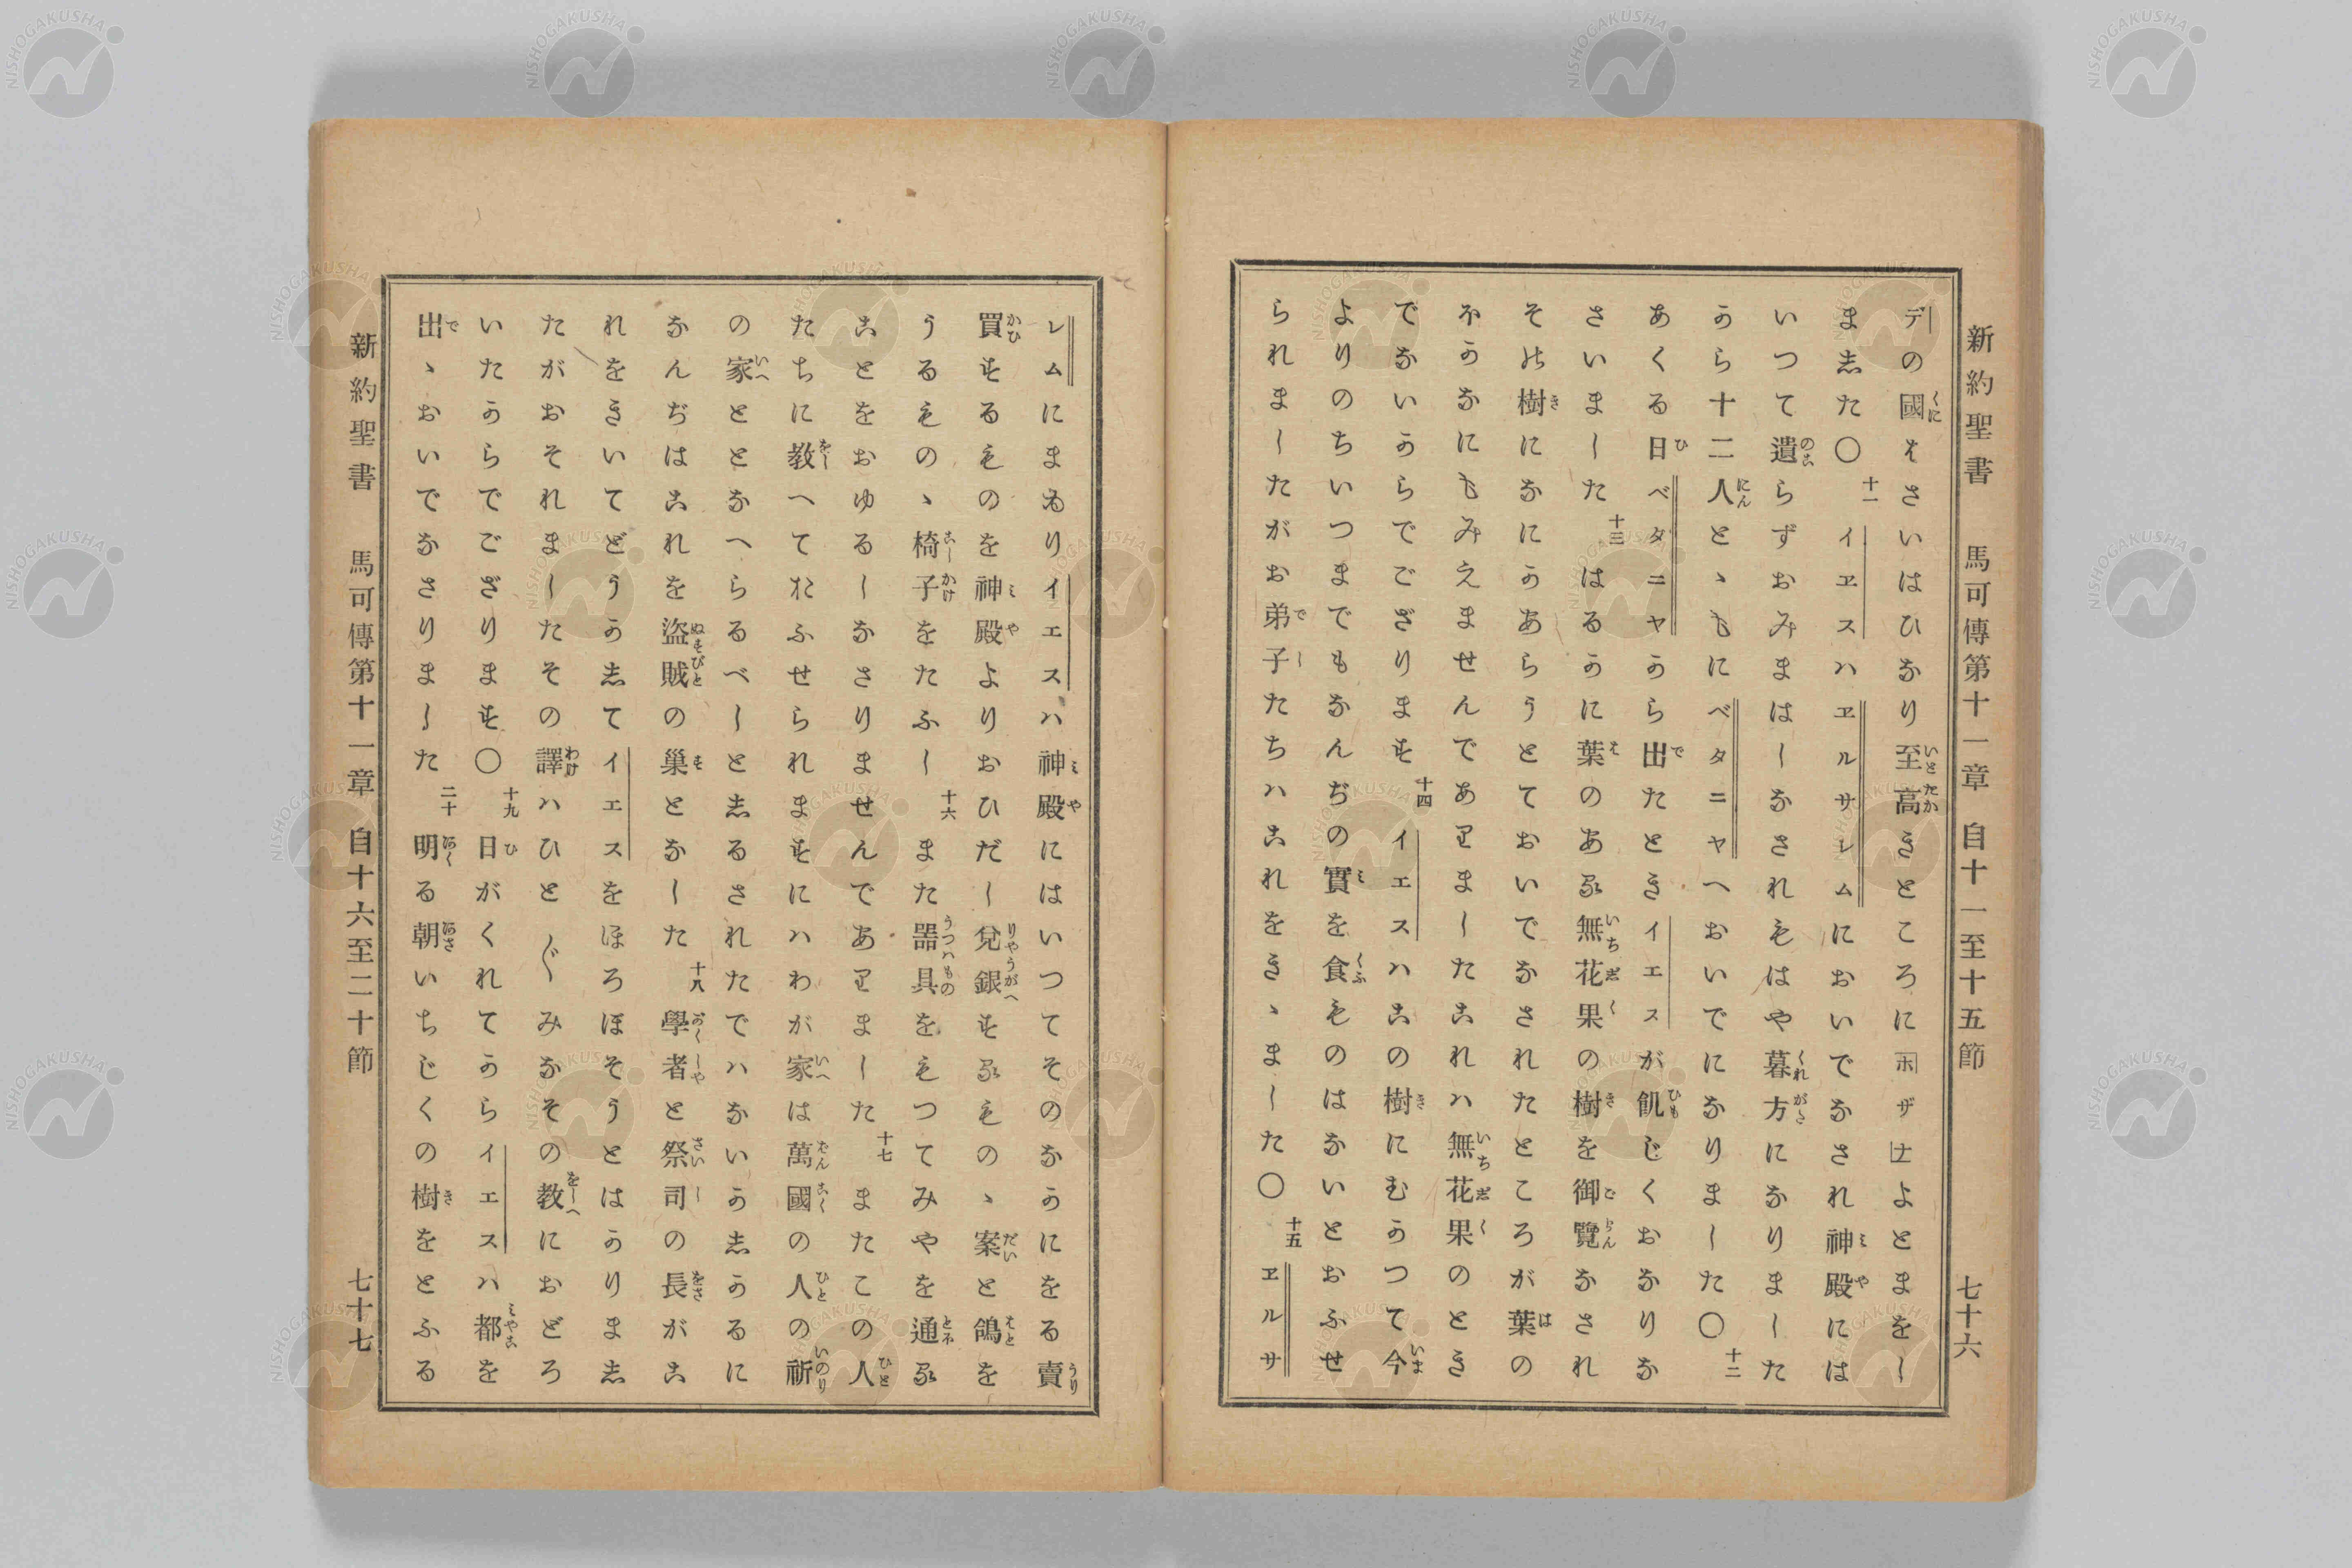 新約聖書 馬可傳第十一章 自十一至十五節 七十六
デの國はさいはひなり至高きところにホザナよとまをし
ました〇十一イヱスハヱルサレムにおいでなされ神殿には
いつて遺らずおみまはしなされもはや暮方になりました
から十二人とゝもにベタニヤへおいでになりました〇十二
あくる日ベタニヤから出たときイエスが飢じくおなりな
さいました十三はるかに葉のある無花果の樹を御覽なされ
その樹になにかあらうとておいでなされたところが葉の
ほかなにもみえませんでありましたこれハ無花果のとき
でないからでござります十四イエスハこの樹にむかつて今
よりのちいつまでもなんぢの實を食ものはないとおふせ
られましたがお弟子たちハこれをきゝました〇十五ヱルサ
レムにまゐりイエスハ神殿にはいつてそのなかにをる賣
買するものを神殿よりおひだし兌銀するものゝ案と鴿を
うるものゝ椅子をたふし十六また噐具をもつてみやを通る
ことをおゆるしなさりませんでありました十七またこの人
たちに教へておふせられますにハわが家は萬國の人の祈
の家ととなへらるべしとしるされたでハないかしかるに
なんぢはこれを盗賊の巣となした十八學者と祭司の長がこ
れをきいてどうかしてイエスをほろぼそうとはかりまし
たがおそれましたその譯ハひと〴〵みなその教におどろ
いたからでござります〇十九日がくれてからイエスハ都を
出ゝおいでなさりました二十明る朝いちじくの樹をとふる
新約聖書 馬可傳第十一章 自十六至二十節 七十七
NISHOGAKUSHA